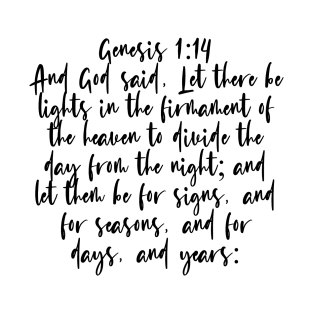 Genesis 1:14
And God said, Let there be
lights in the firmament of
the heaven to divide the
day from the night; and
let them be for signs, and
for seasons, and for
days, and years: